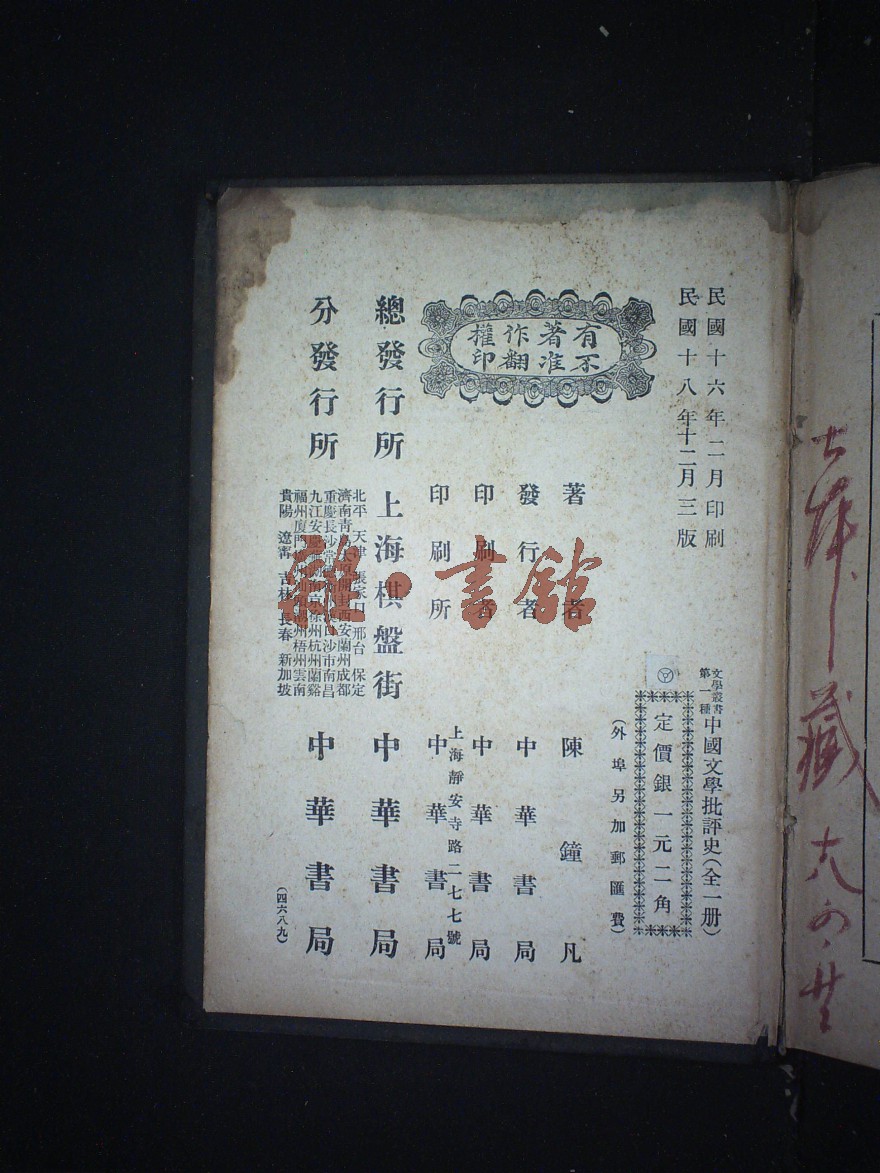 民國十六年二月印刷
民國十八年十二月三版
文學叢書
第一種
中國文學批評史(全一册)
定價銀一元二角
(外埠另加郵匯費)
有著作權
不准翻印
著者 陳鐘凡
發行者 中華書局
印刷者 中華書局
上海靜安寺路二七七號
印刷所 中華書局
總發行所 上海棋盤街 中華書局
分發行所 中華書局
北平 天津 張家口 邢台 保定
濟南青島 開封西安蘭州成都
重慶長沙常 沙市南昌
九江安慶 南京徐州杭州蘭谿
福州廈門 州梧州雲南
貴陽 遼寧 吉林 長春 新加坡
(四六八九)
雜·書館
藏